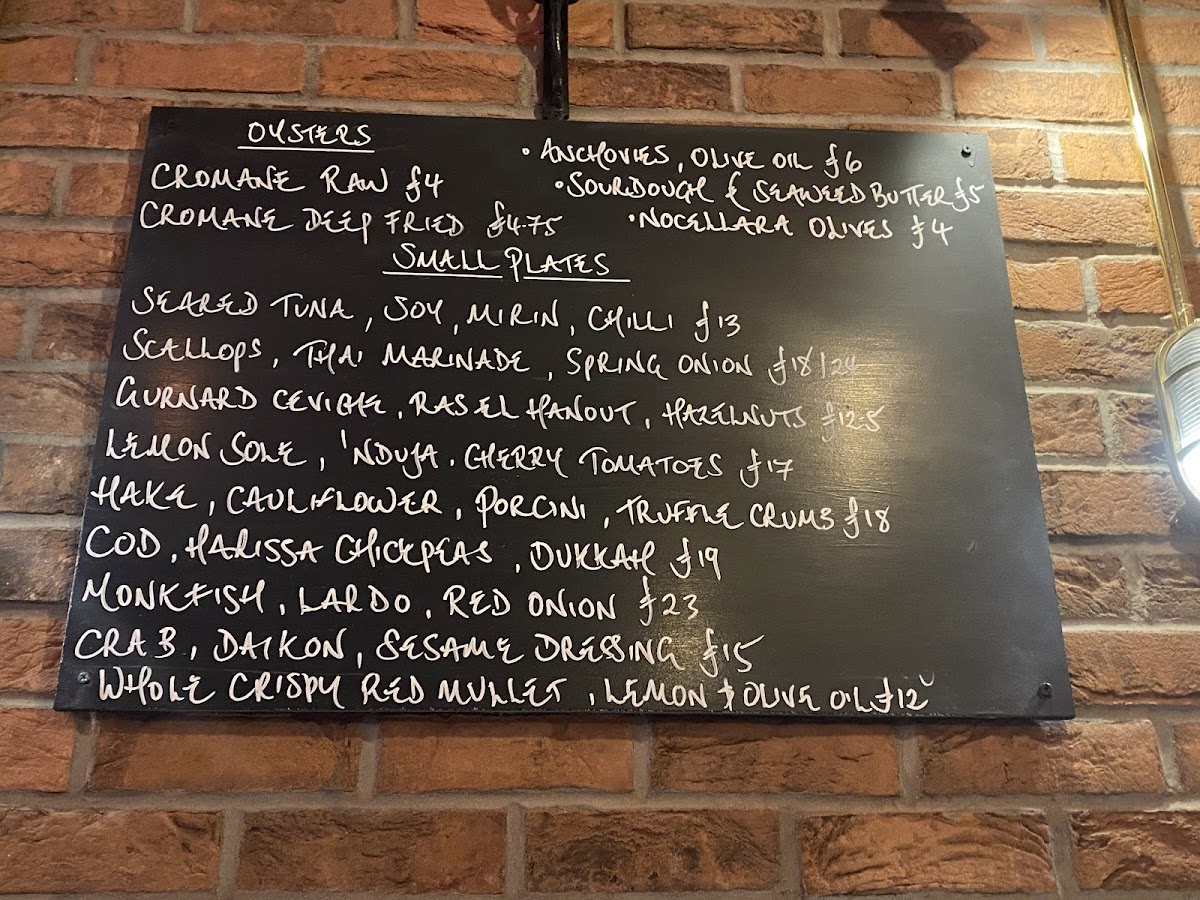 OYSTERS
CROMANE RAW £4
CROMANE DEEP FRIED £4.75
• ANCHOVIES, OLIVE OIL £6
• SOURDOUGH & SEAWEED BUTTER £5
• NOCELLARA OLIVES £4
SMALL PLATES
SEARED TUNA, SOY, MIRIN, CHILLI £13
SCALLOPS, THAI MARINADE, SPRING ONION £18/24
GURNARD CEVICHE, RAS EL HANOUT, HAZELNUTS £12.5
LEMON SOLE, 'NDUJA. CHERRY TOMATOES £17
HAKE, CAULIFLOWER, PORCINI, TRUFFLE CRUMB £18
COD, HARISSA CHICKPEAS, DUKKAH £19
MONKFISH, LARDO, RED ONION £23
CRAB, DAIKON, SESAME DRESSING £15
WHOLE CRISPY RED MULLET, LEMON & OLIVE OIL £12